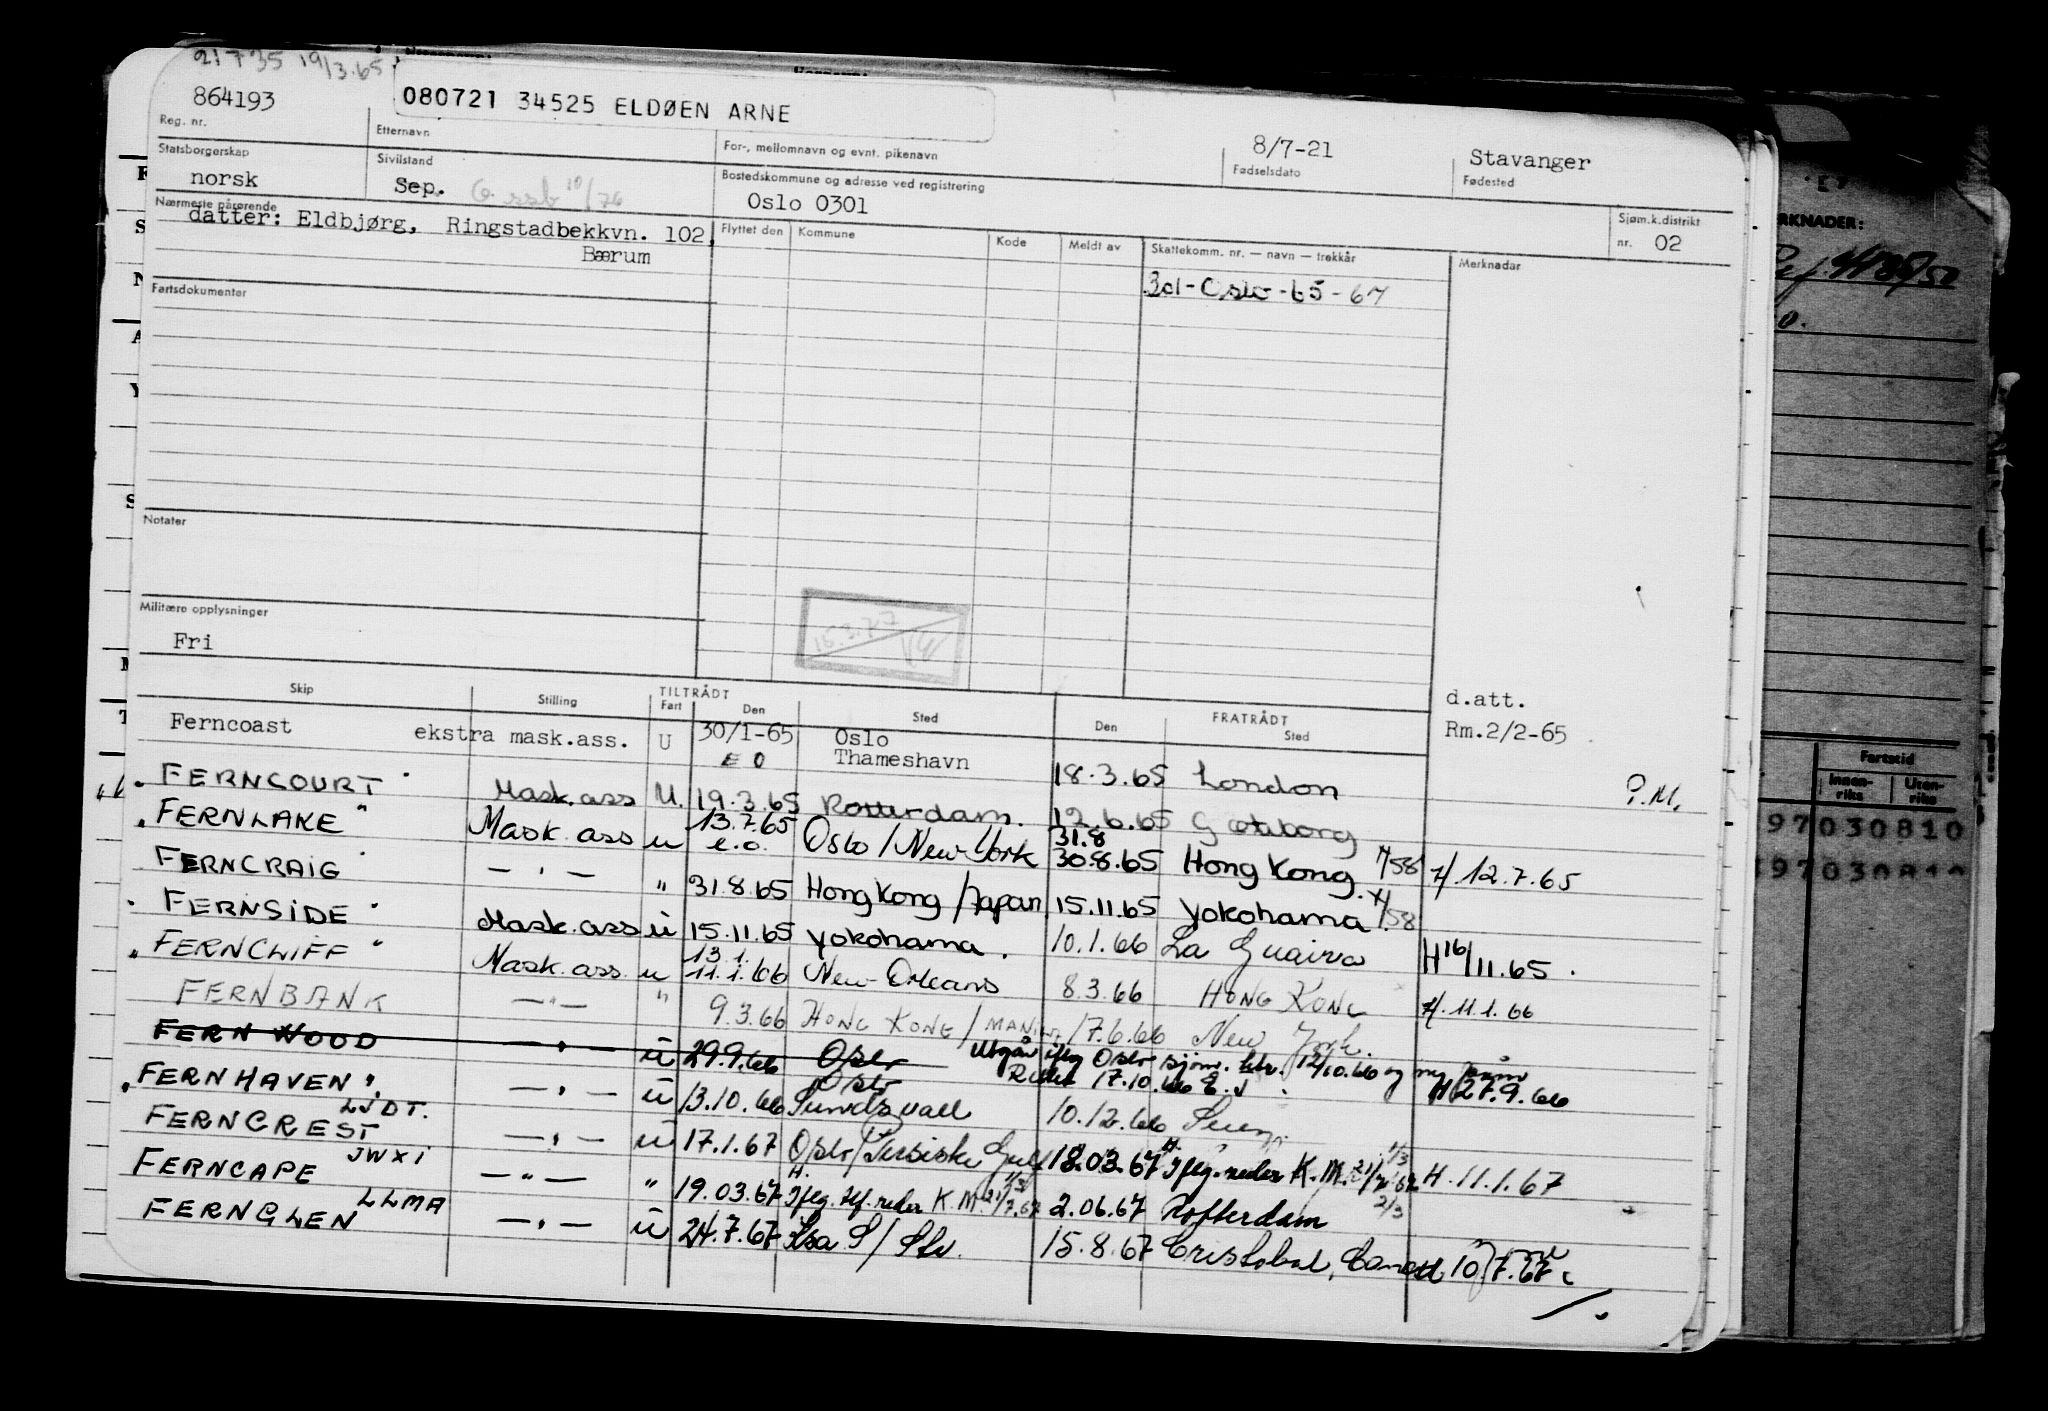 21735 19/3.65
864193
080721 34525 ELDØEN ARNE
8/7-21
Stavanger
Reg. nr.
Etternavn
For-, mellomnavn og evnt. pikenavn
Fødselsdato
Fødested
Statsborgerskap
Sivilstand
Bostedskommune og adresse ved registrering
norsk
Sep.
Oslo 0301
Sjøm.k.distrikt
nr. 02
Nærmeste pårørende
datter: Eldbjørg, Ringstadbekkvn. 102,
Bærum
Flyttet den Kommune Kode Meldt av Skattekomm. nr. — navn — trekkår Merknader
301-Oslo-65-67
Fartsdokumenter
Notater
Militære opplysninger
Fri
15.3.77
d.att.
Rm.2/2-65
Skip Stilling TILTRÅDT Fart Den Sted FRATRÅDT Den Sted
Ferncoast ekstra mask.ass. U 30/1-65 Oslo
E O Thameshavn 18.3.65 London
P.M.
FERNCOURT Mask.ass U. 19.3.65 Rotterdam. 12.6.65 Gøteborg
"FERNLAKE" Mask.ass u 13.7.65 e.o. Oslo/New-York 31.8 30.8.65 Hong Kong 7/58 H.12.7.65
FERNCRAIG — " — " 31.8.65 Hong Kong/Japan 15.11.65 Yokohama
FERNSIDE Mask.ass u 15.11.65 Yokohama. 10.1.66 La Guaira H16/11.65.
"FERNCLIFF" Mask.ass. u 13.1. 11.1.66 New-Orleans 8.3.66 HONG KONG H.11.1.66
FERNBANK — " — " 9.3.66 HONG KONG/ 17.6.66 New York.
FERN WOOD — " — u 29.9.66 Oslo Utgår iflg Oslo sjøm. 12/10.66 og
Reder 17.10.66 H 27.9.66
"FERNHAVEN" — " — u 13.10.66 Oslo Sundsvall 10.12.66
LJDT.
FERNCREST — " — u 17.1.67 Oslo/Persiske Gulf 18.03.67 H. Iflg. reder K.M. H.11.1.67
JWXI
FERNCAPE — " — " 19.03.67 H. Iflg. tlf. reder K.M. 2.06.67 Rotterdam
LLMA
FERNGLEN — " — u 24.7.67 15.8.67 Cristobal, 10.7.67
ERKNADER:
Fartstid
Innen-
riks
Uten-
riks
97030810